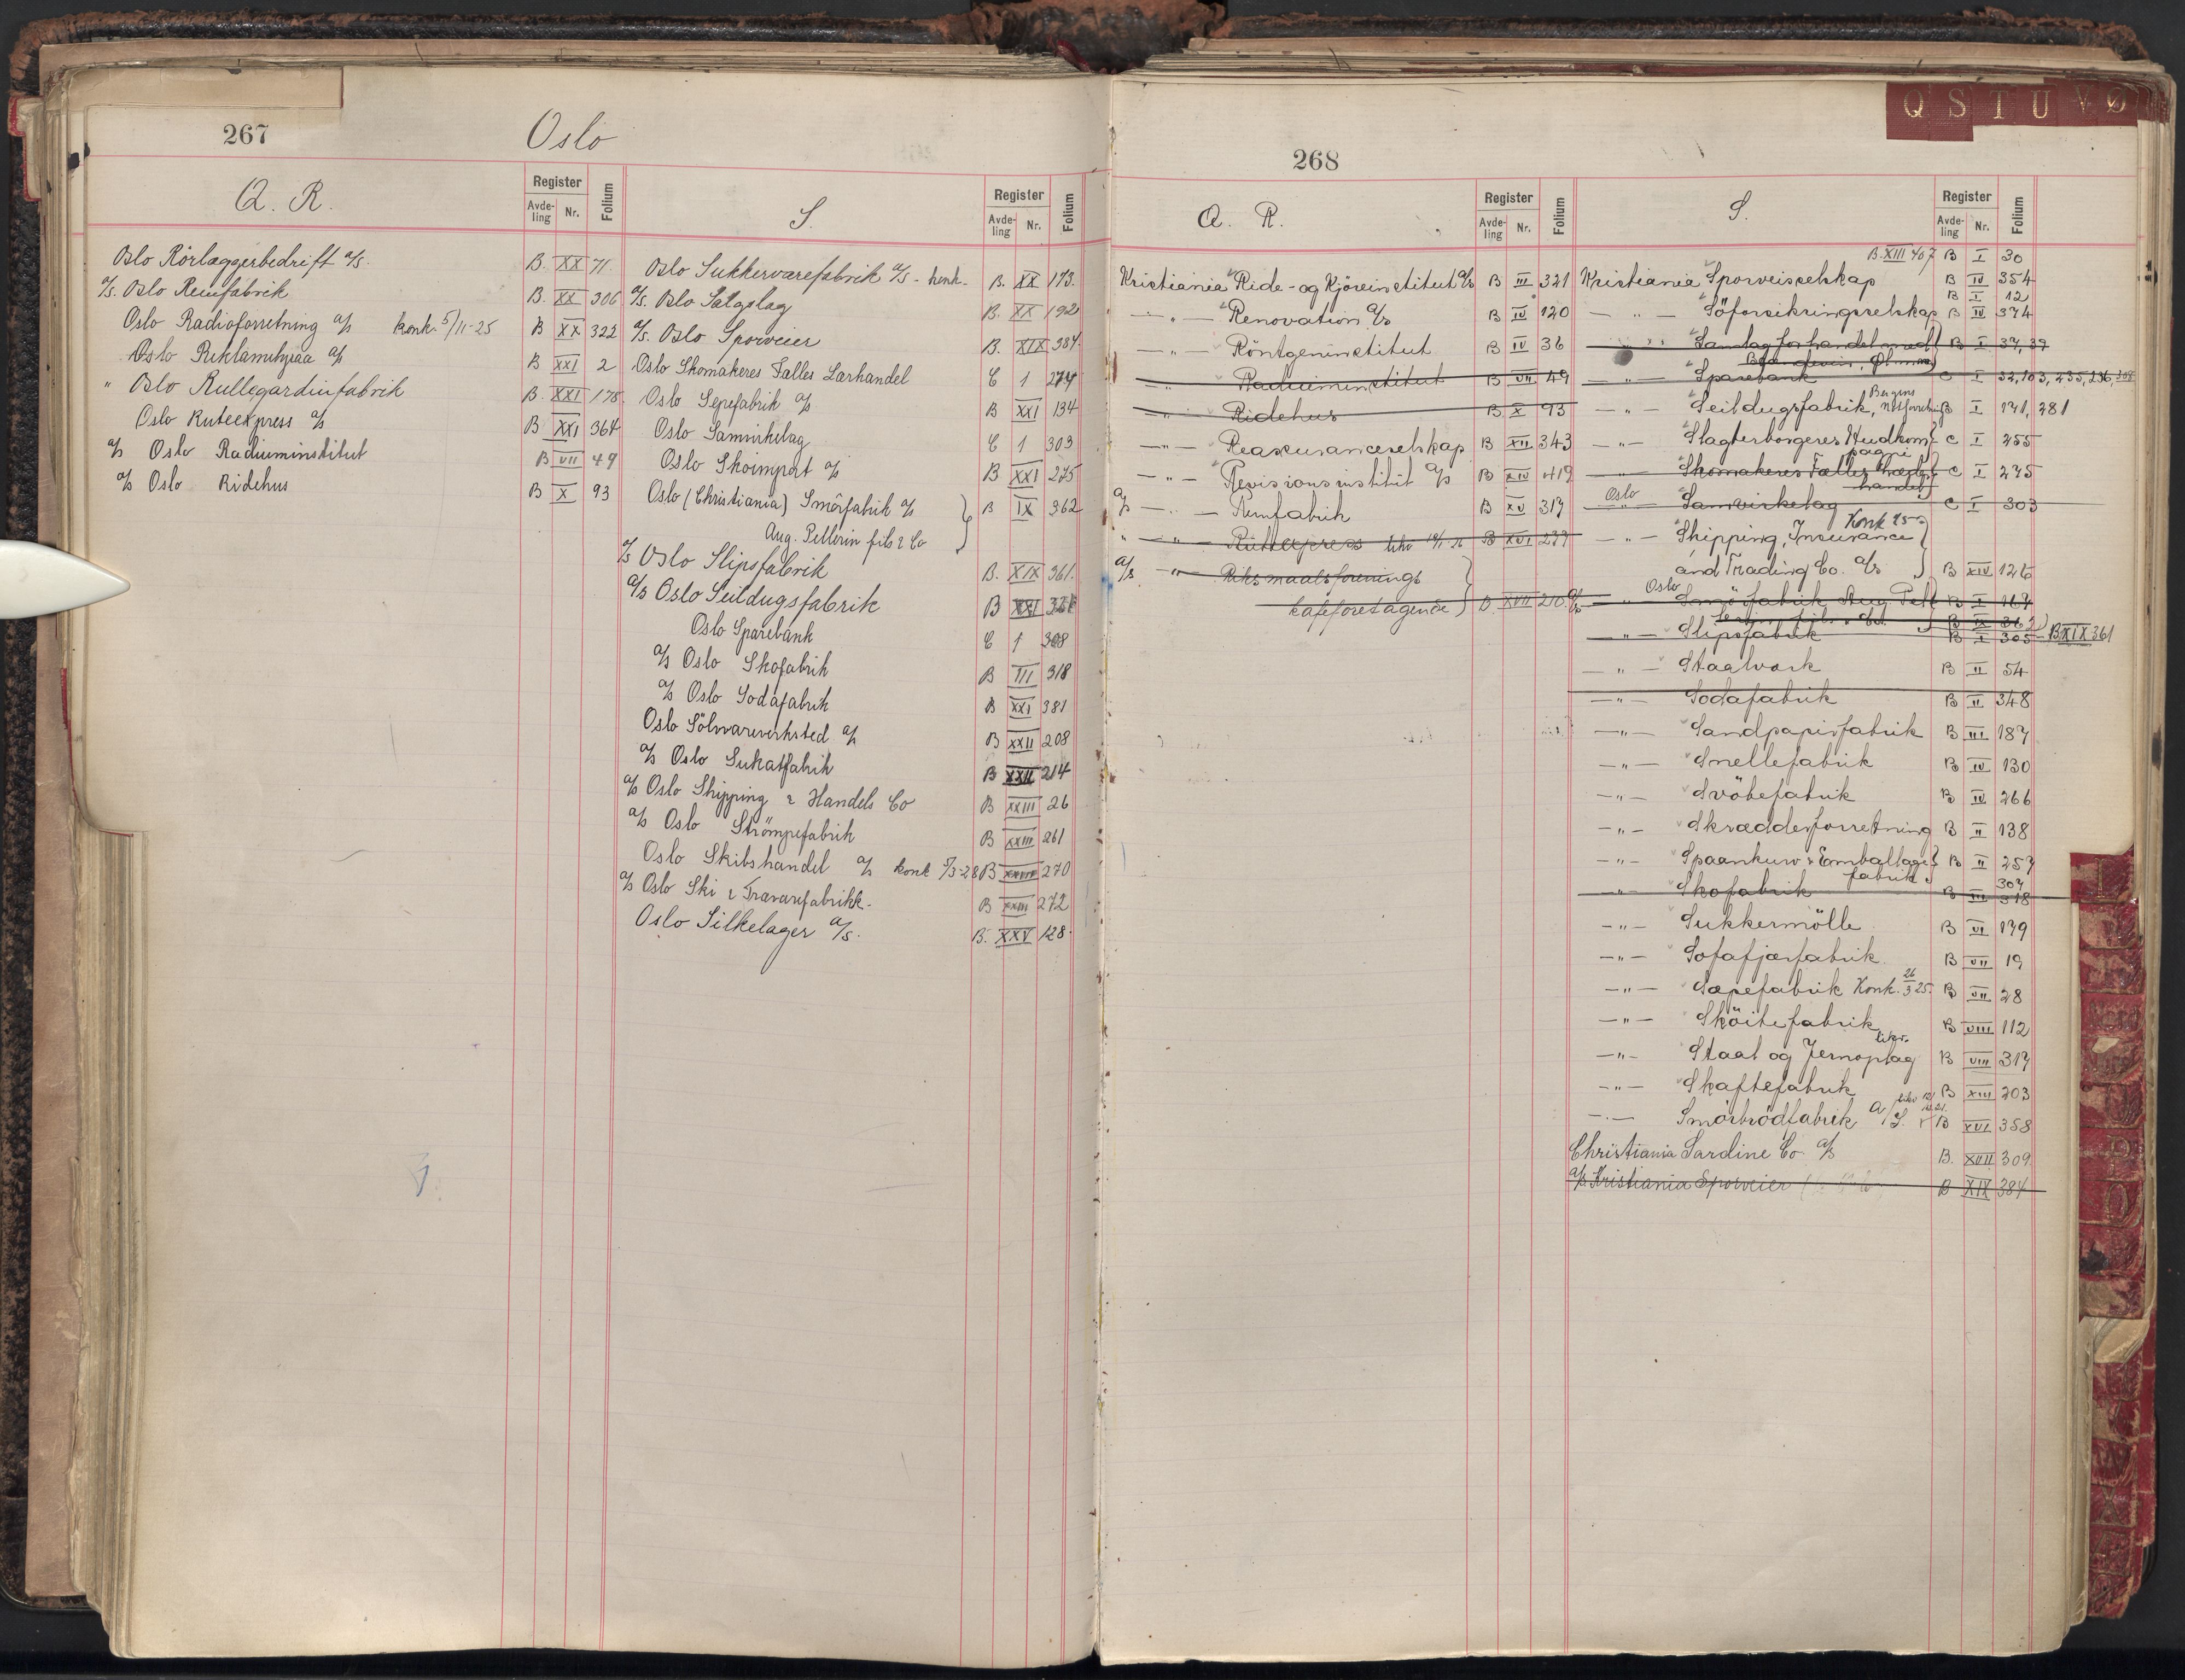 267
Oslo
Q. R.
Register
Avde-ling Nr. Folium
Oslo Rörlæggerbedrift a/s. B. XX 71
a/s. Oslo Remfabrik B. XX 306
Oslo Radioforretning a/s konk. 5/11-25 B XX 322
Oslo Reklamebyraa a/s B XXI 2
" Oslo Rullegardinfabrik B. XXI 178
Oslo Ruteexpress a/s B XXI 364
a/s Oslo Radiuminstitut B VII 49
a/s Oslo Ridehus B X 93
S.
Register
Avde-ling Nr. Folium
Oslo Sukkervarefabrik a/s - konk. B. XX 173.
a/s. Oslo Salgslag B. XX 192
a/s. Oslo Sporveier B. XIX 384.
Oslo Skomakeres Fælles Lærhandel C 1 274
Oslo Sepefabrik a/s B XXI 134
Oslo Samvirkelag C 1 303
Oslo Skoimport a/s B XXI 275
Oslo (Christiania) Smörfabrik a/s B IX 362
Aug. Pellerin fils & Co
a/s Oslo Slipsfabrik B. XIX 361.
a/s Oslo Seildugsfabrik B XXI
Oslo Sparebank C 1 308
a/s Oslo Skofabrik B III 318
a/s Oslo Sodafabrik B XXI 381
Oslo Sölvvareverksted a/s B XXII 208
a/s Oslo Sukatfabrik B XXII 214
a/s Oslo Shipping & Handels Co B XXIII 26
a/s Oslo Strömpefabrik B XXIII 261
Oslo Skibshandel a/s konk 5/3-28 B XXIII 270
a/s Oslo Ski & Travarefabrikk. B XXIII 272
Oslo Silkelager a/s. B. XXV 128.
268
Q S T U V Ø
Q. R.
Register
Avde-ling Nr. Folium
Kristiania Ride- og Kjöreinstitut a/s B III 321
— " — Renovation a/s B IV 120
— " — Röntgeninstitut B IV 36
— " — Radiuminstitut B VII 49
— " — Ridehus B X 93
— " — Reassuranceselskap B XII 343
— " — Revisionsinstitut a/s B XIV 419
a/s — " — Remfabrik B XV 317
" — " — Rutexpress B XVI 239
a/s — " — Riksmaalsforenings
kafeforetagende B. XVII 210.
S.
Register
Avde-ling Nr. Folium
B. XIII 407 B I 30
Kristiania Sporveisselskap B IV 354
B I 12
— " — Söforsikringsselskap B IV 374
— " — Samlag for handel med B I 37, 39
Brændevin, Øl m.m.
— " — Sparebank C I 32, 103, 235, 236, 308
Bergens
— " — Seildugsfabrik, Notforretning B I 141, 281
— " — Slagterborgeres Hudkom- C I 255
pagni
— " — Skomakeres Fælles Læder- C I 275
handel
Oslo — Samvirkelag C I 303
Konk 25
— " — Shipping, Insurance
and Trading Co. a/s B XIV 126
Oslo
a/s — " — Smörfabrik Aug. Pell- B I 164
erin fils & Co B IX 362
— " — Slipsfabrik B I 305 - B XIX 361
— " — Staalvark B II 54
— " — Sodafabrik B II 348
— " — Sandpapirfabrik B III 187
— " — Snellefabrik B IV 130
— " — Svöbefabrik B IV 266
— " — Skrædderforretning B II 138
— " — Spaankurv & Emballage- B II 257
fabrik 307
— " — Skofabrik B III 318
— " — Sukkermölle B VI 139
— " — Sofafjærfabrik B VII 19
— " — Sæpefabrik Konk. 26/3 25. B VII 28
— " — Sköitefabrik B VIII 112
likv.
— " — Staal og Jernoplag B VIII 317
— " — Skaftefabrik B XIII 203
— " — Smörbrödfabrik A/S. B XVI 358
Christiania Sardine Co a/s B. XVII 309.
a/s Kristiania Sporveier B XIX 384